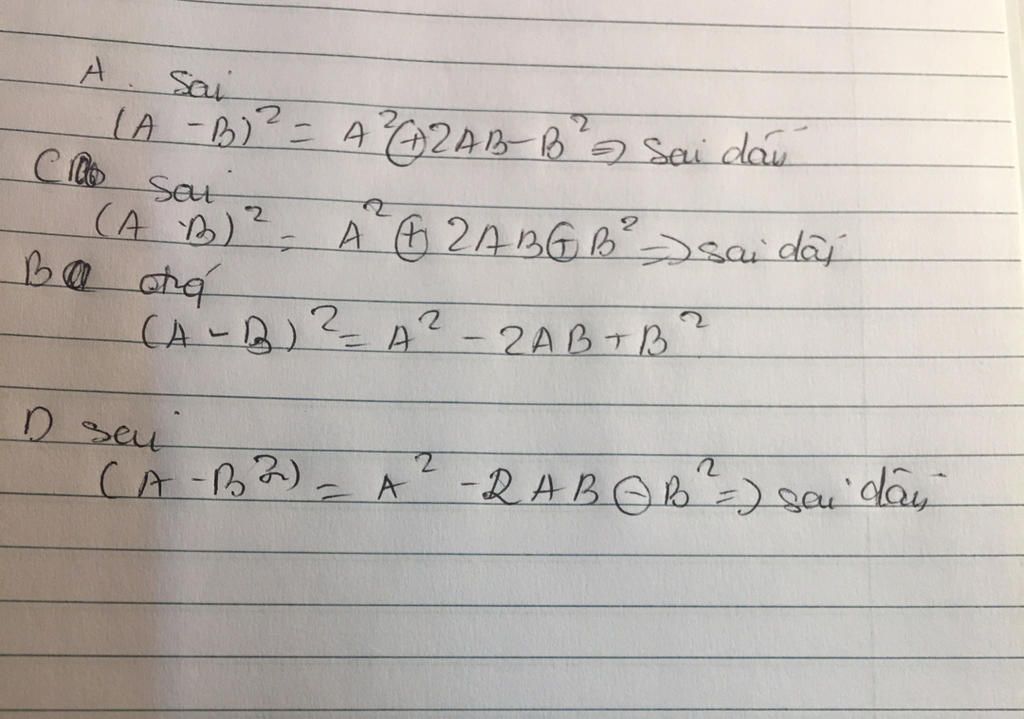 A. Sai
(A - B)² = A² + 2AB - B² => sai dấu
C sai
(A B)² = A² + 2AB + B² => sai dấu
B
(A - B)² = A² - 2AB + B²
D sai
(A - B²) = A² - 2AB - B² => sai dấu